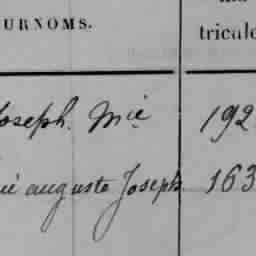 URNOMS.
tricule
Joseph. Mie 192
auguste Joseph 163